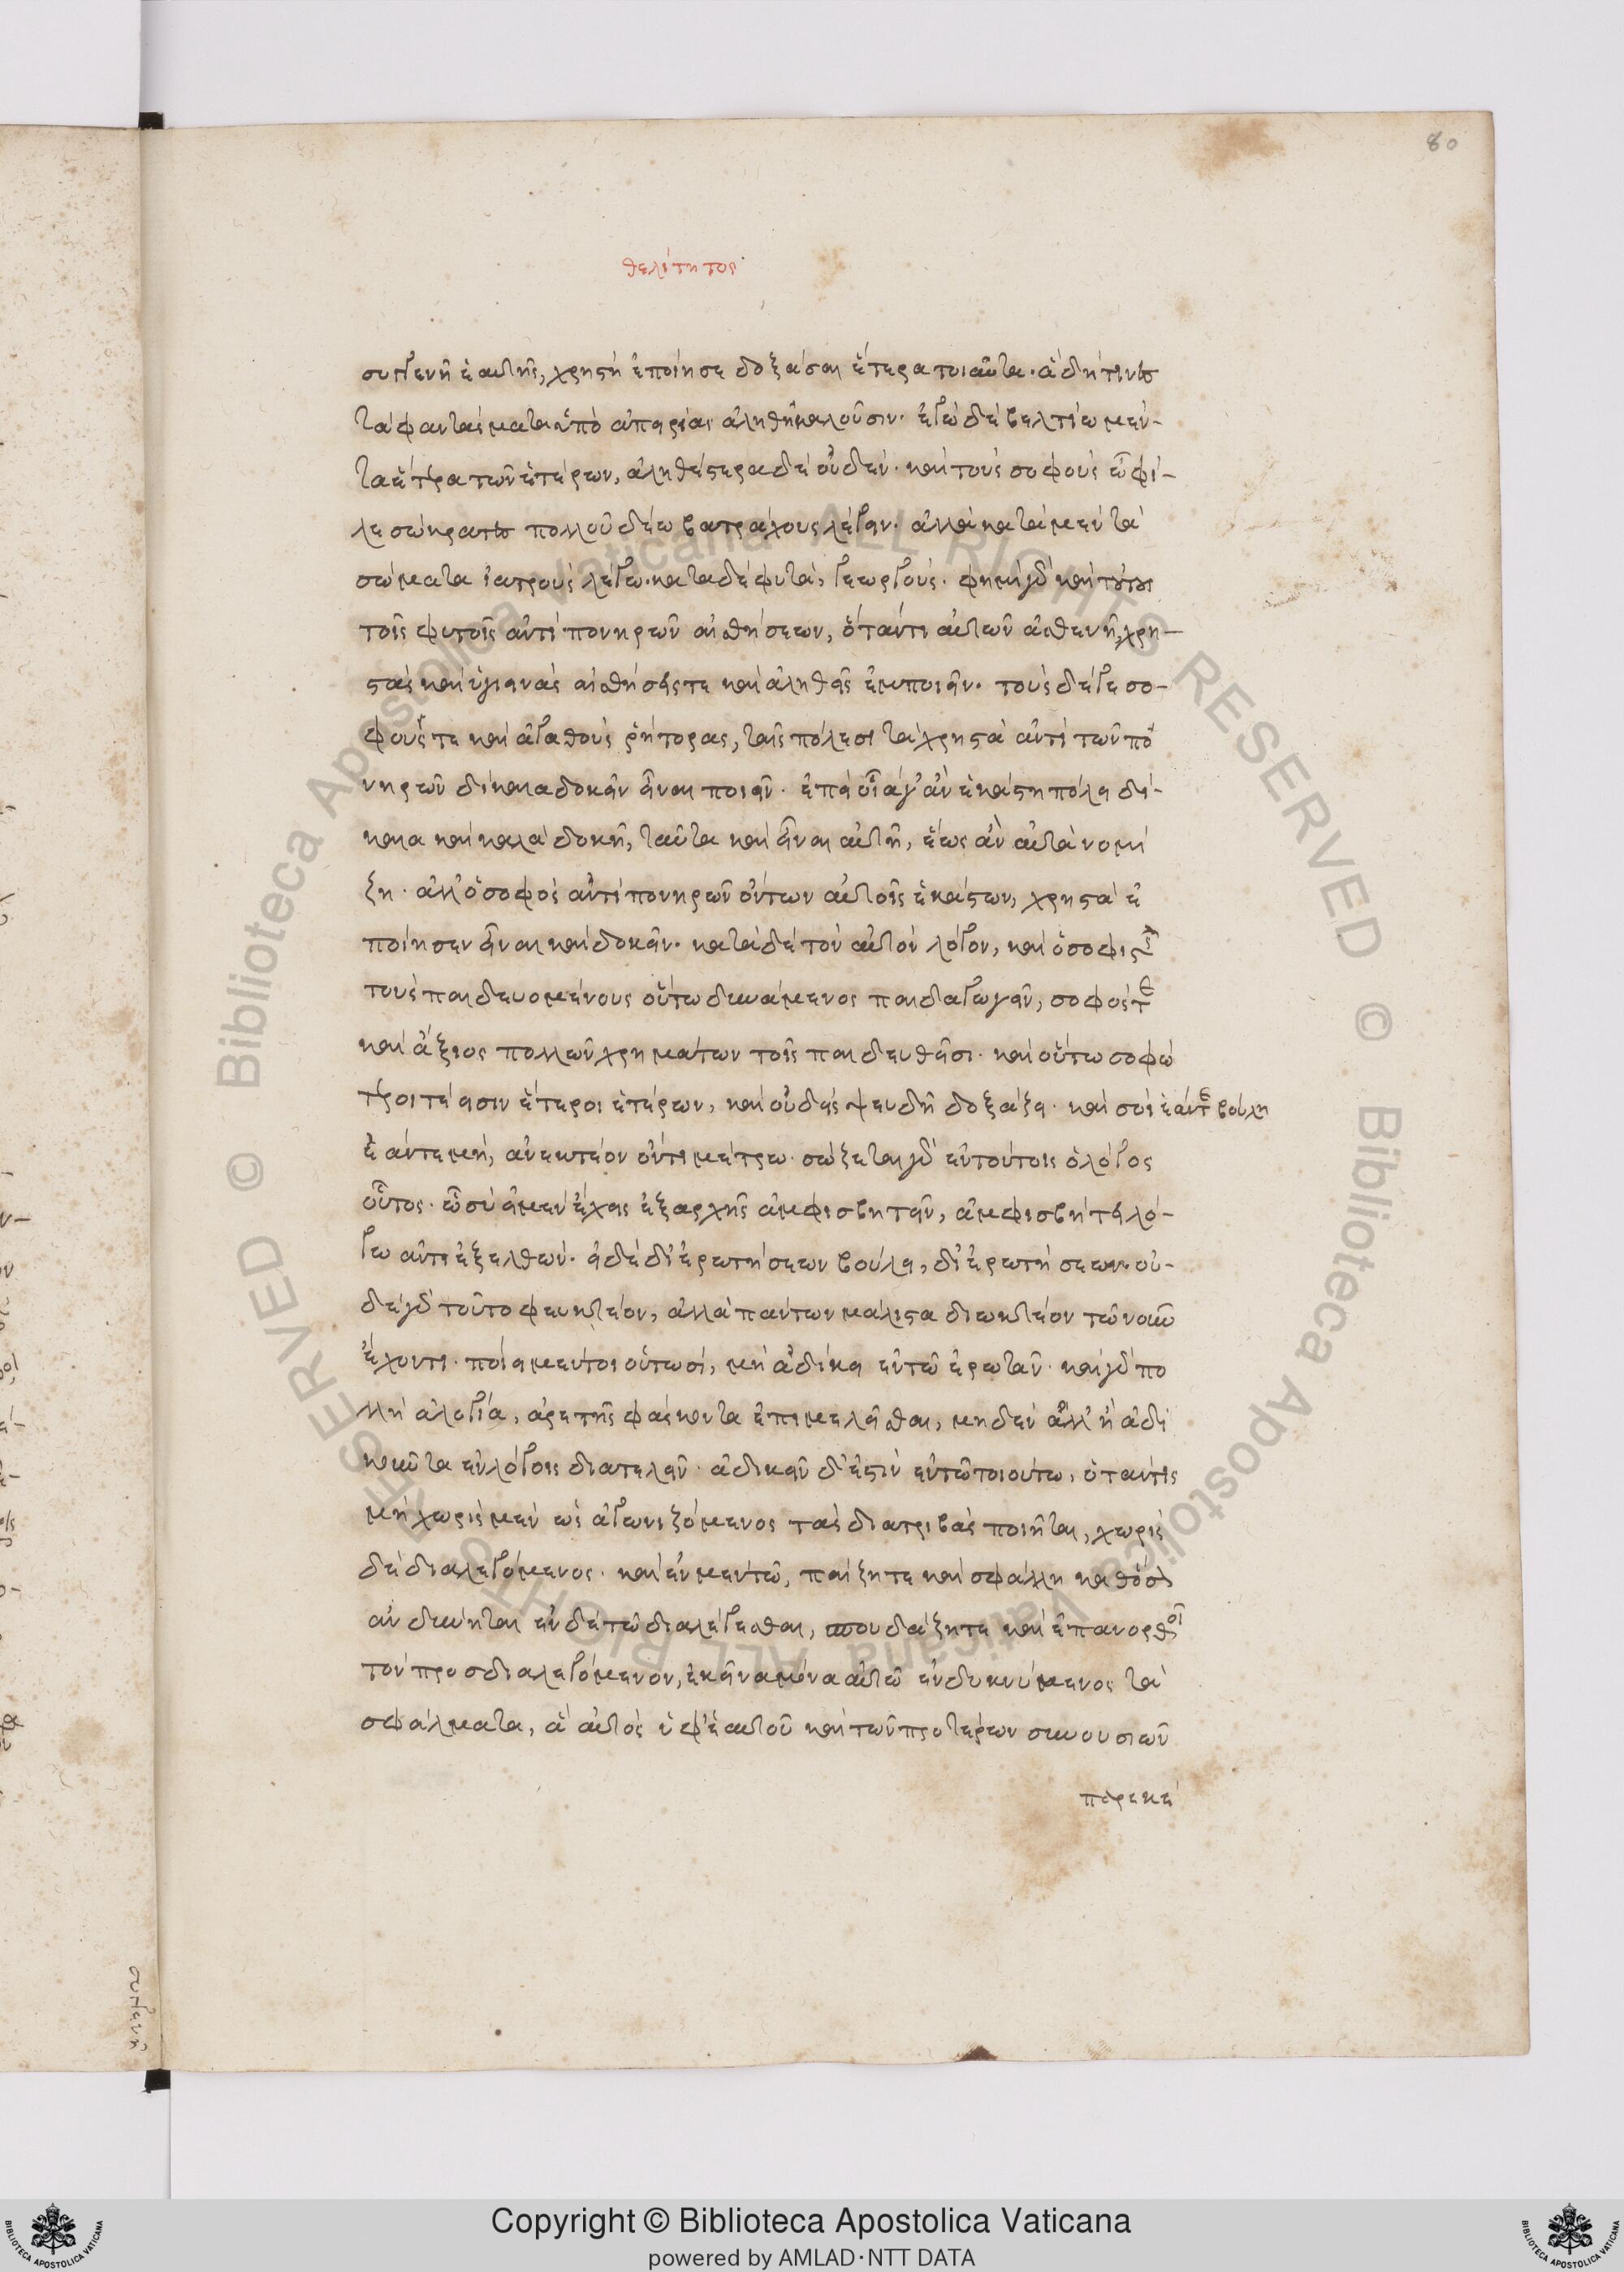 80
θεαίτητος
συγγενῆ ἑαυτῆς, χρηστὴ ἐποίησε δοξάσαι ἕτερα τοιαῦτα. ἃ δή τινες
τὰ φαντάσματα ὑπὸ ἀπειρίας ἀληθῆ καλοῦσιν. ἐγὼ δὲ βελτίω μὲν
τὰ ἕτερα τῶν ἑτέρων, ἀληθέστερα δὲ οὐδέν. καὶ τοὺς σοφοὺς ὦ φί-
λε σώκρατες πολλοῦ δέω βατράχους λέγειν. ἀλλὰ κατὰ μὲν τὰ
σώματα ἰατροὺς λέγω. κατὰ δὲ φυτά, γεωργούς. φημὶ γὰρ καὶ τούτους
τοῖς φυτοῖς ἀντὶ πονηρῶν αἰσθήσεων, ὅταν τι αὐτῶν ἀσθενῇ, χρη-
στὰς καὶ ὑγιεινὰς αἰσθήσεις τε καὶ ἀληθεῖς ἐμποιεῖν. τοὺς δέ γε σο-
φούς τε καὶ ἀγαθοὺς ῥήτορας, ταῖς πόλεσι τὰ χρηστὰ ἀντὶ τῶν πο
νηρῶν δίκαια δοκεῖν εἶναι ποιεῖν. ἐπεὶ οἷά γ' ἂν ἑκάστῃ πόλει δί-
καια καὶ καλὰ δοκῇ, ταῦτα καὶ εἶναι αὐτῇ, ἕως ἂν αὐτὰ νομί
ζῃ. ἀλλ' ὁ σοφὸς ἀντὶ πονηρῶν ὄντων αὐτοῖς ἑκάστων, χρηστὰ ἐ
ποίησεν εἶναι καὶ δοκεῖν. κατὰ δὲ τὸν αὐτὸν λόγον, καὶ ὁ σοφιστὴς
τοὺς παιδευομένους οὕτω δυνάμενος παιδαγωγεῖν, σοφός τε
καὶ ἄξιος πολλῶν χρημάτων τοῖς παιδευθεῖσι. καὶ οὕτω σοφώ
τεροί τέ εἰσιν ἕτεροι ἑτέρων, καὶ οὐδεὶς ψευδῆ δοξάζει. καὶ σοὶ ἐάν τε βούλῃ
ἐάν τε μή, ἀνεκτέον ὄντι μέτρῳ. σώζεται γὰρ ἐν τούτοις ὁ λόγος
οὗτος. ᾧ σὺ εἰ μὲν ἔχεις ἐξαρχῆς ἀμφισβητεῖν, ἀμφισβήτει λό-
γῳ ἀντιεξελθών. εἰ δὲ δι' ἐρωτήσεων βούλει, δι' ἐρωτήσεων. οὐ-
δὲ γὰρ τοῦτο φευκτέον, ἀλλὰ πάντων μάλιστα διωκτέον τῷ νοῦν
ἔχοντι. ποίει μέντοι οὑτωσί, μὴ ἀδίκει ἐν τῷ ἐρωτᾶν. καὶ γὰρ πο
λλὴ ἀλογία, ἀρετῆς φάσκοντα ἐπιμελεῖσθαι, μηδὲν ἀλλ' ἢ ἀδι
κοῦντα ἐν λόγοις διατελεῖν. ἀδικεῖν δ' ἐστὶν ἐν τῷ τοιούτῳ, ὅταν τις
μὴ χωρὶς μὲν ὡς ἀγωνιζόμενος τὰς διατριβὰς ποιῆται, χωρὶς
δὲ διαλεγόμενος. καὶ ἐν μὲν τῷ, παίζῃ τε καὶ σφάλλῃ καθόσον
ἂν δύνηται ἐν δὲ τῷ διαλέγεσθαι, σπουδάζῃ τε καὶ ἐπανορθοῖ
τὸν προσδιαλεγόμενον, ἐκεῖνα μόνα αὐτῷ ἐνδεικνύμενος τὰ
σφάλματα, ἃ αὐτὸς ὑφ' ἑαυτοῦ καὶ τῶν προτέρων συνουσιῶν
παρεκέ
συγγενῆ